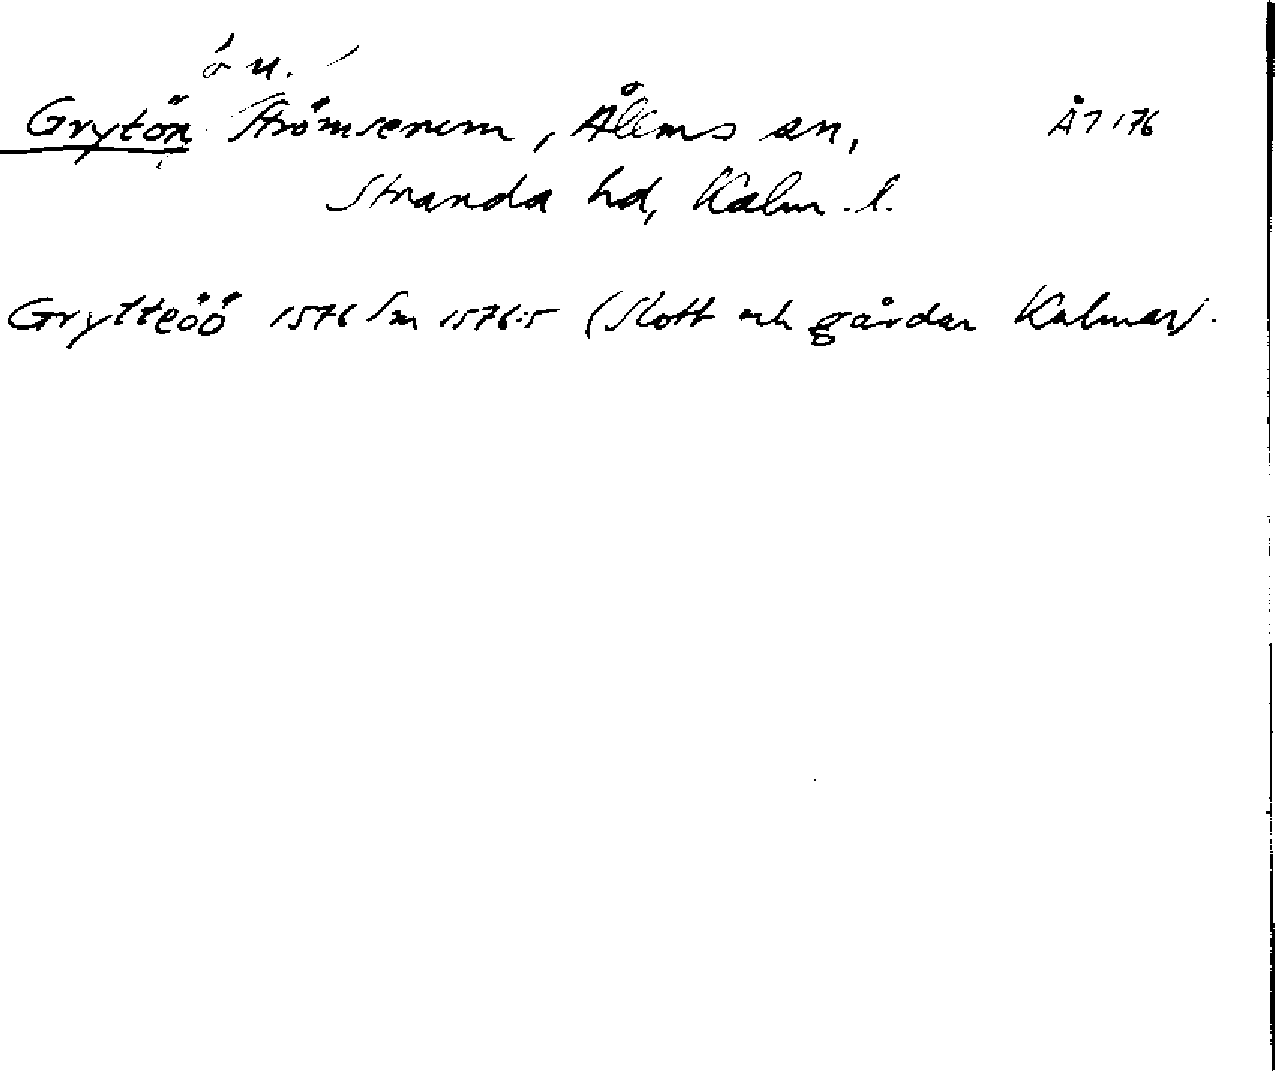 ö u.
Grytön Strömserum, Ålems sn, ÅJ 176
Stranda hd, Kalm. l.
Grytteöö 1576 Sm 1576:5 (Slott och gårdar Kalmar).